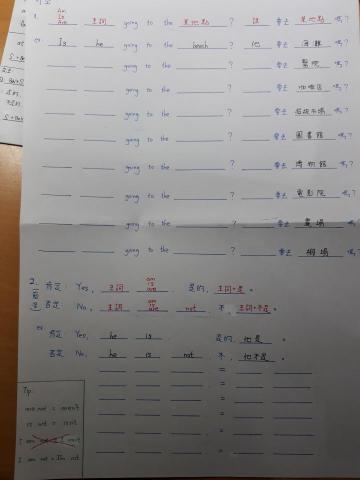 1. Am Is Are 主詞 going to the 某地點 ? 誰 要去 某地點 嗎?
ex. Is he going to the beach ? 他 要去 海灘 嗎?
going to the ? 要去 醫院 嗎?
going to the ? 要去 咖啡店 嗎?
going to the ? 要去 嗎?
going to the ? 要去 圖書館 嗎?
going to the ? 要去 博物館 嗎?
going to the ? 要去 電影院 嗎?
going to the ? 要去 農場 嗎?
going to the ? 要去 嗎?
2. 肯定: Yes, 主詞 am is are . 是的, 主詞+是 。
否定: No, 主詞 am is are not . 不, 主詞+不是 。
ex.
肯定: Yes, he is 是的, 他是 。
否定: No, he is not . 不, 他不是 。
Tip:
are not = aren't
is not = isn't
I am not = I'm not